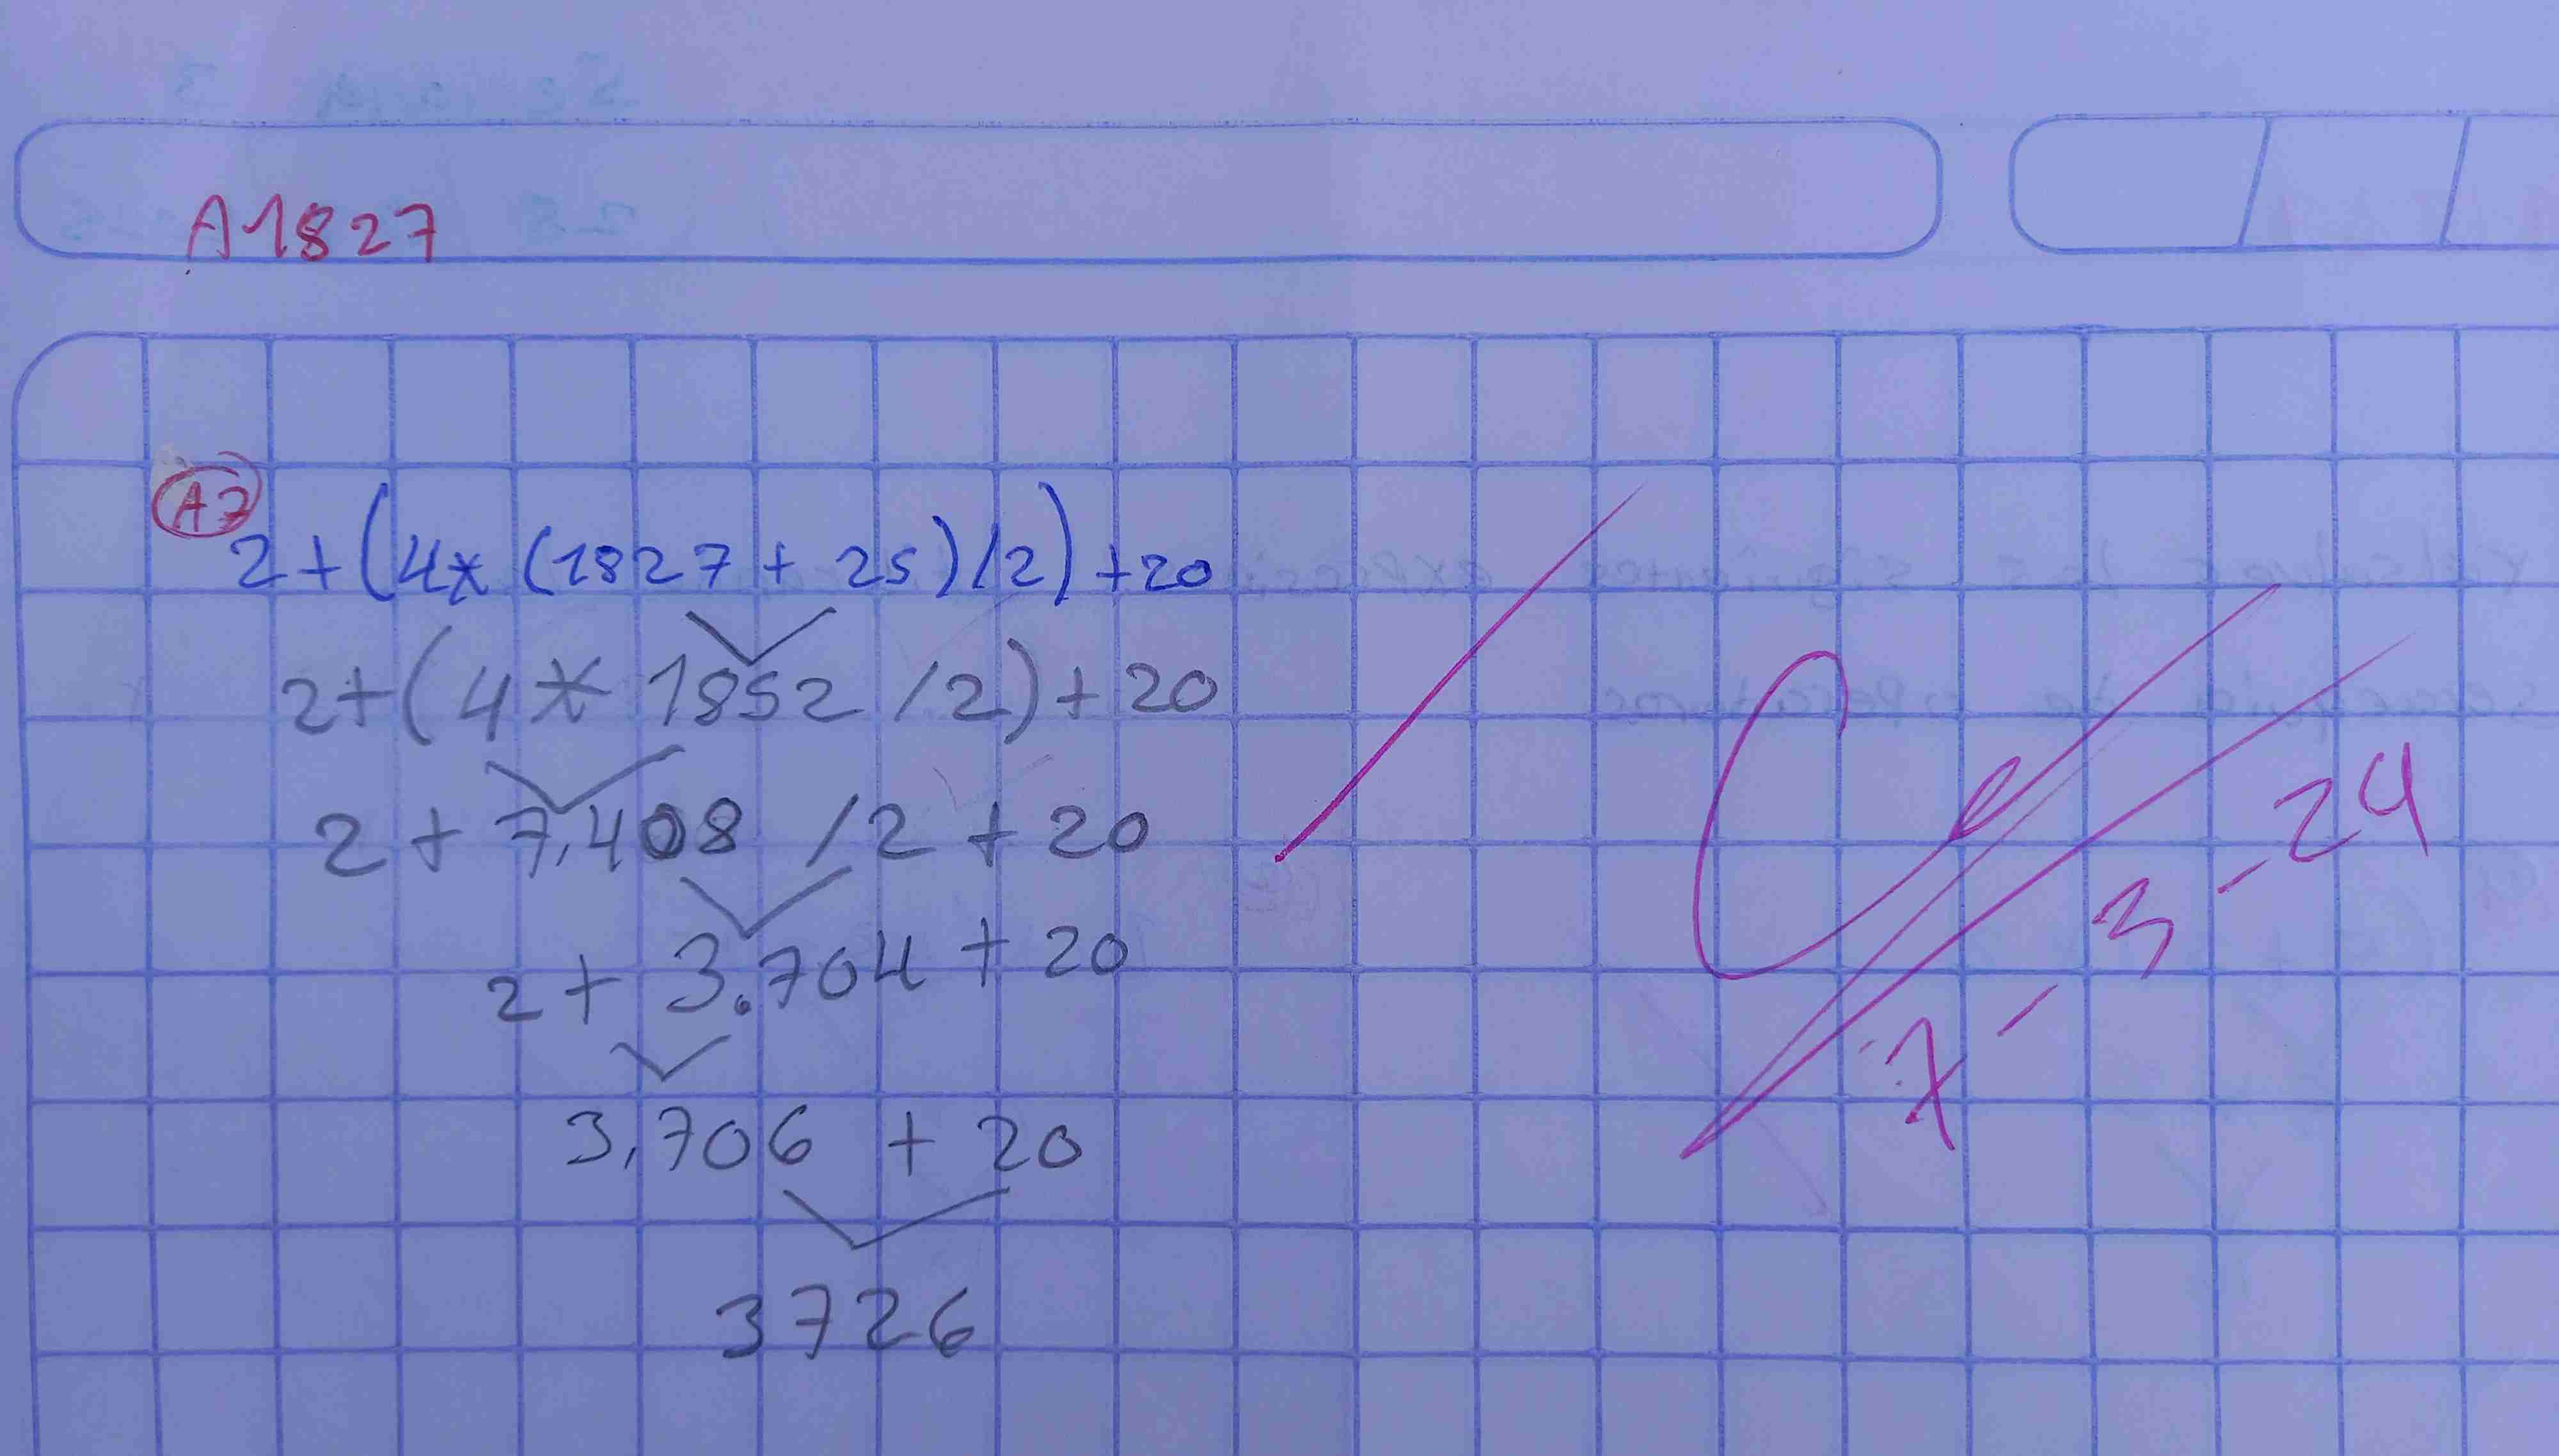 A1827
A7
2+(4*(1827+25)/2)+20
2+(4*1852/2)+20
2+7,408/2+20
2+3.704+20
3,706+20
3726
7-3-24